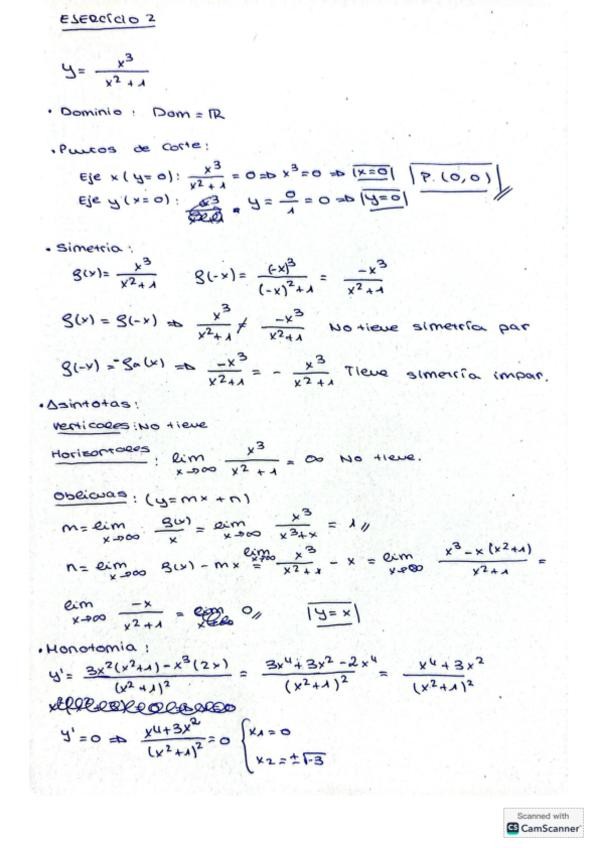 EJERCICIO 2
y = x³/(x² + 1)
• Dominio: Dom = ℝ
• Puntos de corte:
Eje x (y=0): x³/(x² + 1) = 0 ⇒ x³ = 0 ⇒ |x=0| P.(0,0)
Eje y (x=0): y = 0/1 = 0 ⇒ |y=0|
• Simetría:
f(x) = x³/(x² + 1) f(-x) = (-x)³/((-x)² + 1) = -x³/(x² + 1)
f(x) = f(-x) ⇒ x³/(x² + 1) ≠ -x³/(x² + 1) No tiene simetría par
f(-x) = -f(x) ⇒ -x³/(x² + 1) = - x³/(x² + 1) Tiene simetría impar.
• Asíntotas:
Verticales: No tiene
Horizontales: lim x→∞ x³/(x² + 1) = ∞ No tiene.
Oblicuas: (y = mx + n)
m = lim x→∞ f(x)/x = lim x→∞ x³/(x³ + x) = 1
n = lim x→∞ f(x) - mx = lim x→∞ x³/(x² + 1) - x = lim x→∞ (x³ - x(x² + 1))/(x² + 1) =
lim x→∞ -x/(x² + 1) = 0 |y = x|
• Monotomia:
y' = (3x²(x² + 1) - x³(2x))/(x² + 1)² = (3x⁴ + 3x² - 2x⁴)/(x² + 1)² = (x⁴ + 3x²)/(x² + 1)²
y' = 0 ⇒ (x⁴ + 3x²)/(x² + 1)² = 0 { x₁ = 0
x₂ = ±√-3
Scanned with
CS CamScanner